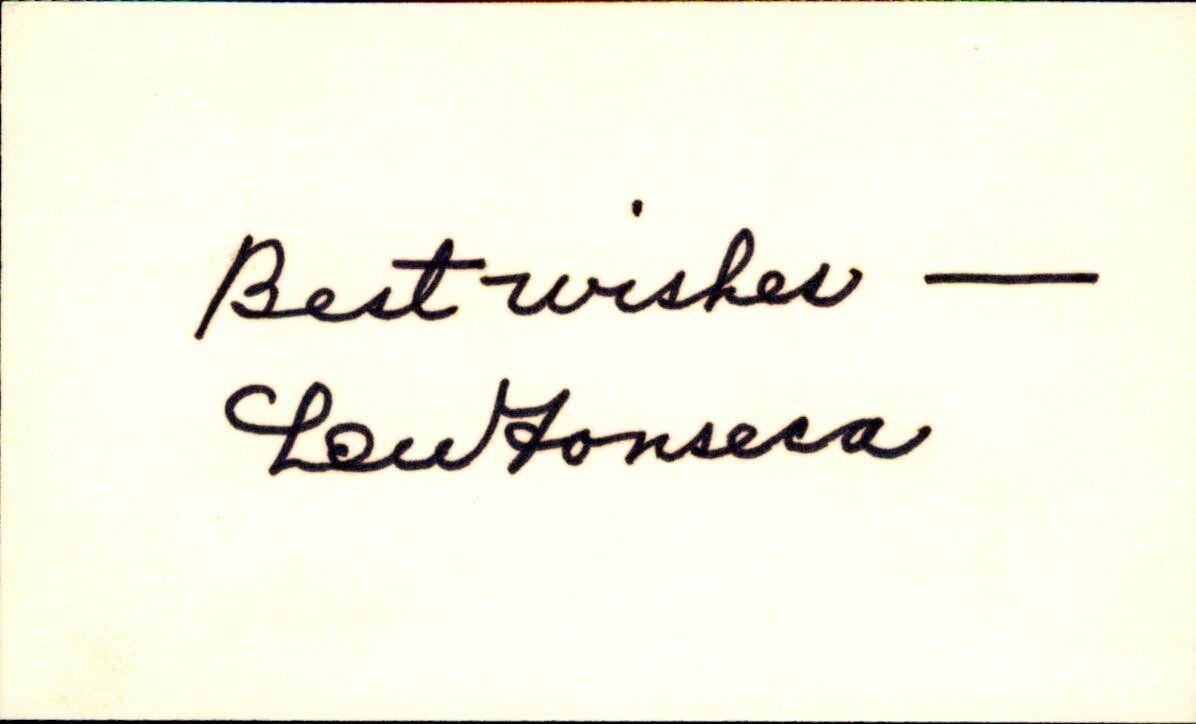 Best wishes —
Lew Fonseca